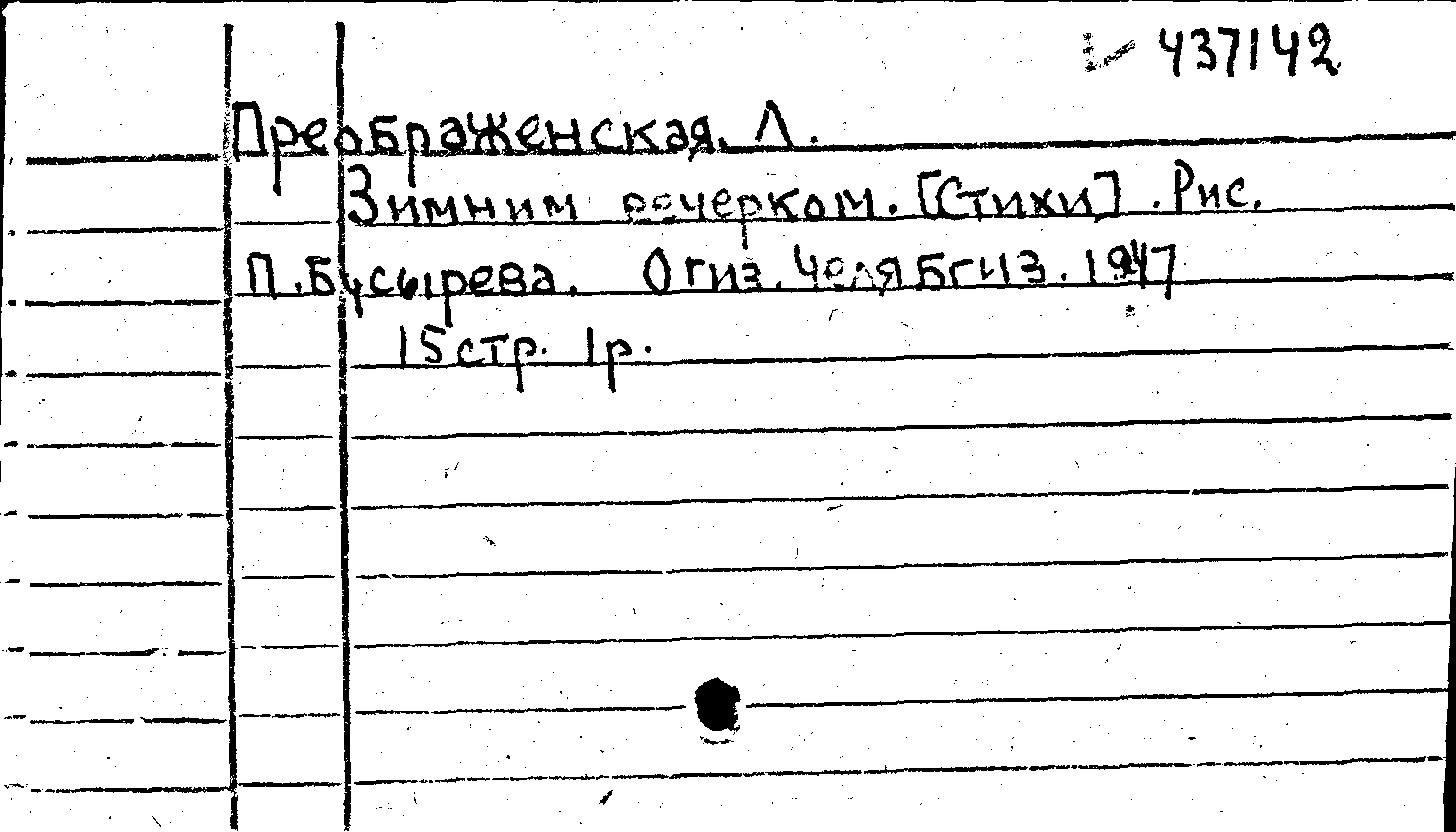 437142
Преображенская, Л.
Зимним вечерком. [Стихи]. Рис.
П. Бусырева. Огиз. Челябгиз. 1947
15 стр. 1 р.